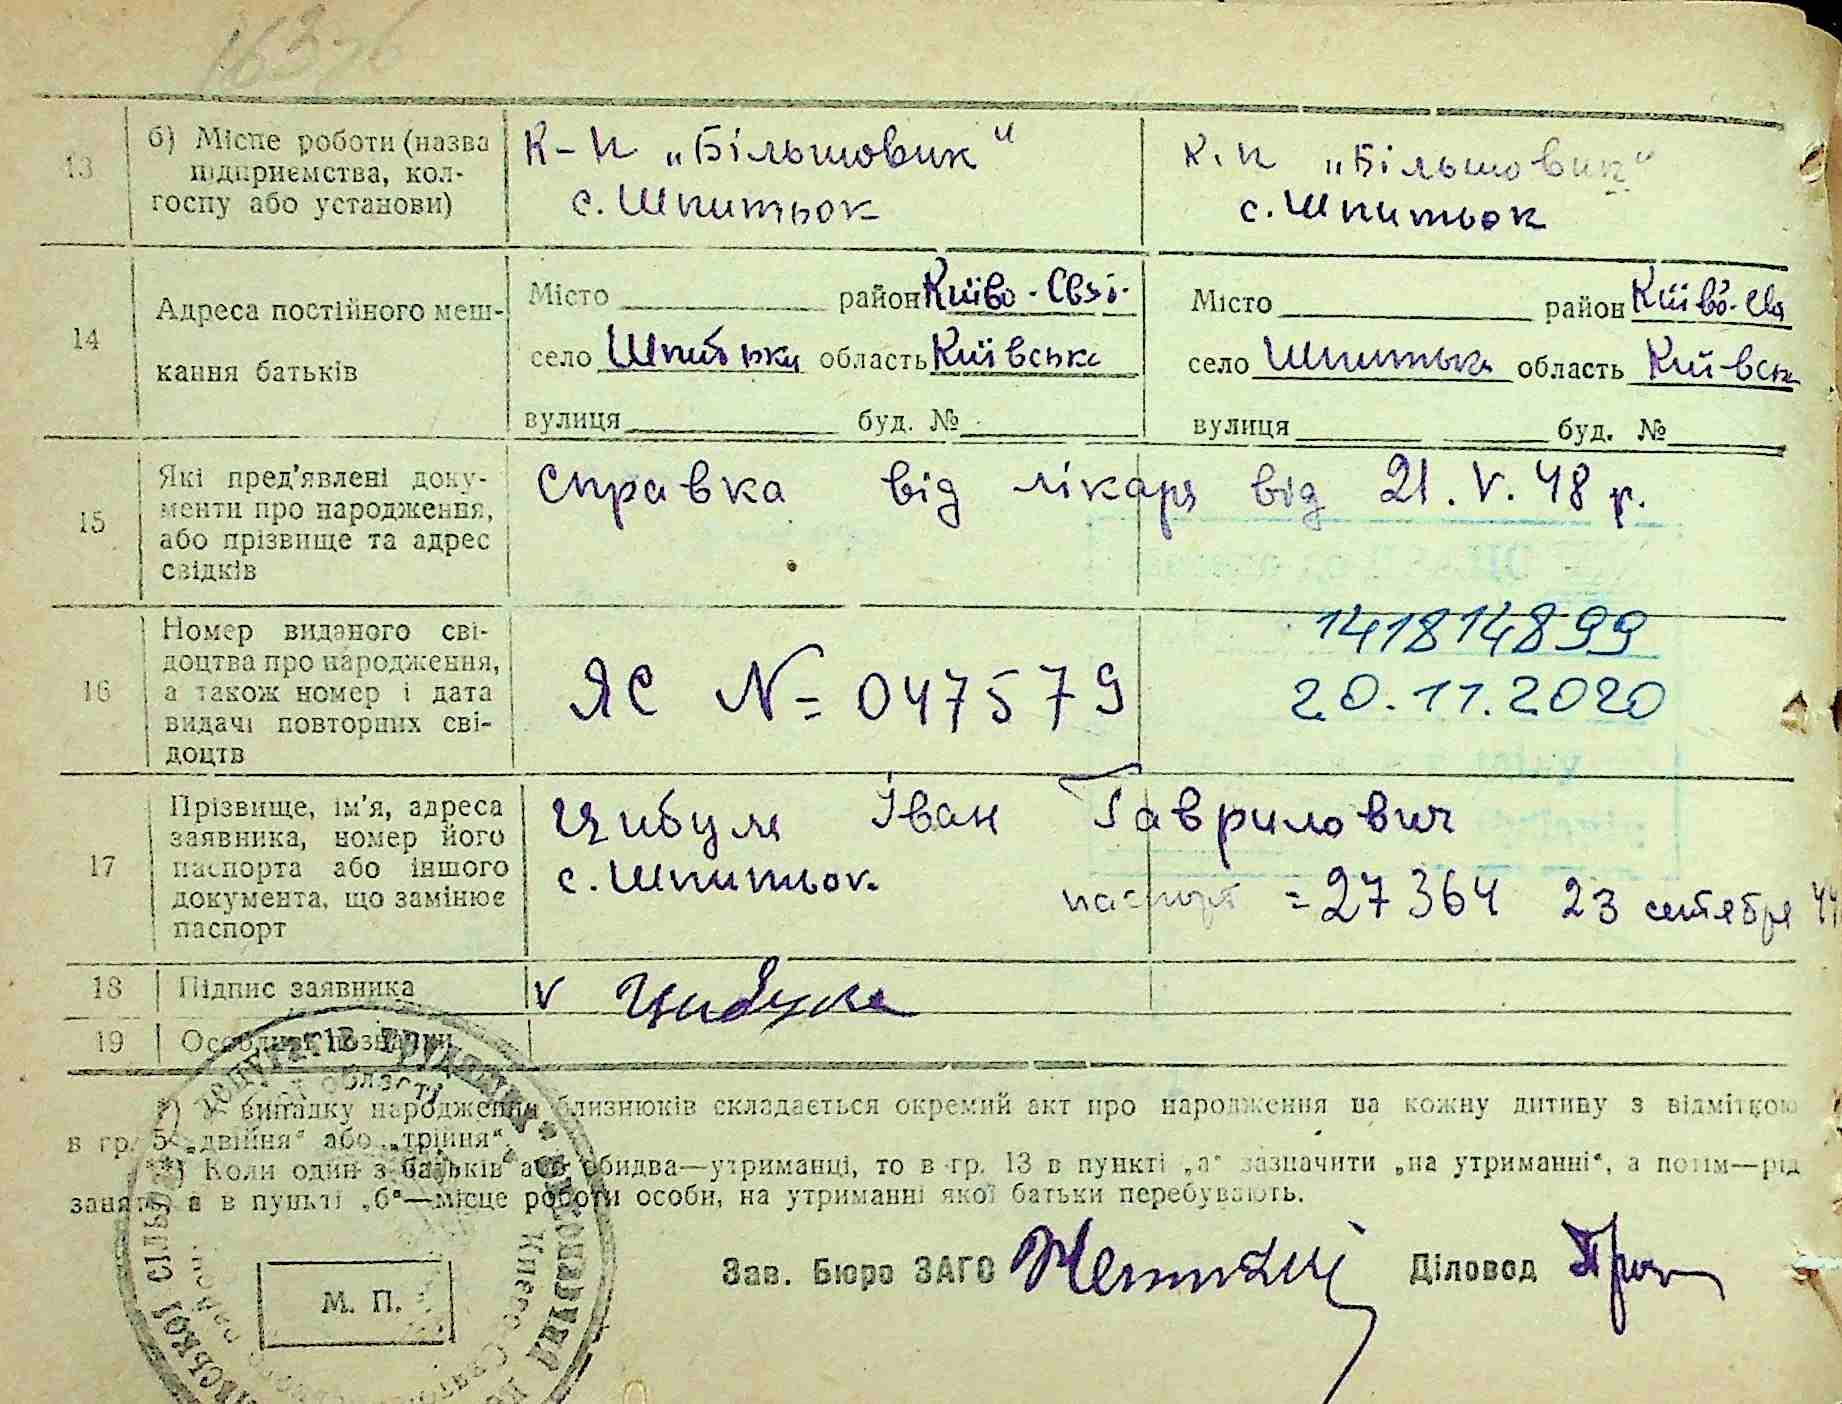 13
б) Місце роботи (назва
підприємства, кол-
госпу або установи)
К-п „Більшовик"
с. Шпитьок
к. п „Більшовик"
с. Шпитьок
14
Адреса постійного меш-
кання батьків
Місто район Києво-Свя
село Шпитьки область Київськ
вулиця буд. №
Місто район Києво-Свя
село Шпитьк область Київськ
вулиця буд. №
15
Які пред'явлені доку-
менти про народження,
або прізвище та адрес
свідків
Справка від лікаря від 21. V. 48 р.
16
Номер виданого сві-
доцтва про народження,
а також номер і дата
видачі повторних сві-
доцтв
ЯС № 047579
141814899
20.11.2020
17
Прізвище, ім'я, адреса
заявника, номер його
паспорта або іншого
документа, що замінює
паспорт
Цибуля Іван Гаврилович
с. Шпитьок
паспорт = 27364 23 сентября 44
18
Підпис заявника
v Цибуля
19
Особливі познач
*) У випадку народження близнюків складається окремий акт про народження на кожну дитину з відміткою
в гр. 5 „двійня" або „трійня".
Коли один з батьків або обидва—утриманці, то в гр. 13 в пункті „а" зазначити „на утриманні", а потім—рід
занять, а в пункті „б"—місце роботи особи, на утриманні якої батьки перебувають.
Зав. Бюро ЗАГС
Діловод
М. П.